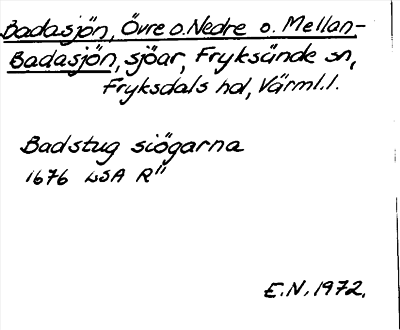 Badasjön, Övre o. Nedre o. Mellan-
Badasjön, sjöar, Fryksände sn,
Fryksdals hd, Värml.l.
Badstug siögarna
1676 LSA R"
E.N. 1972.